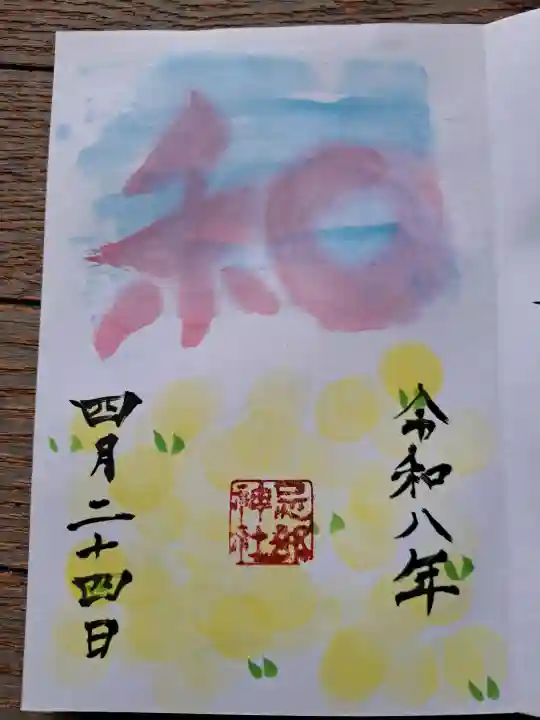 和
令和八年
忌部
神社
四月二十四日